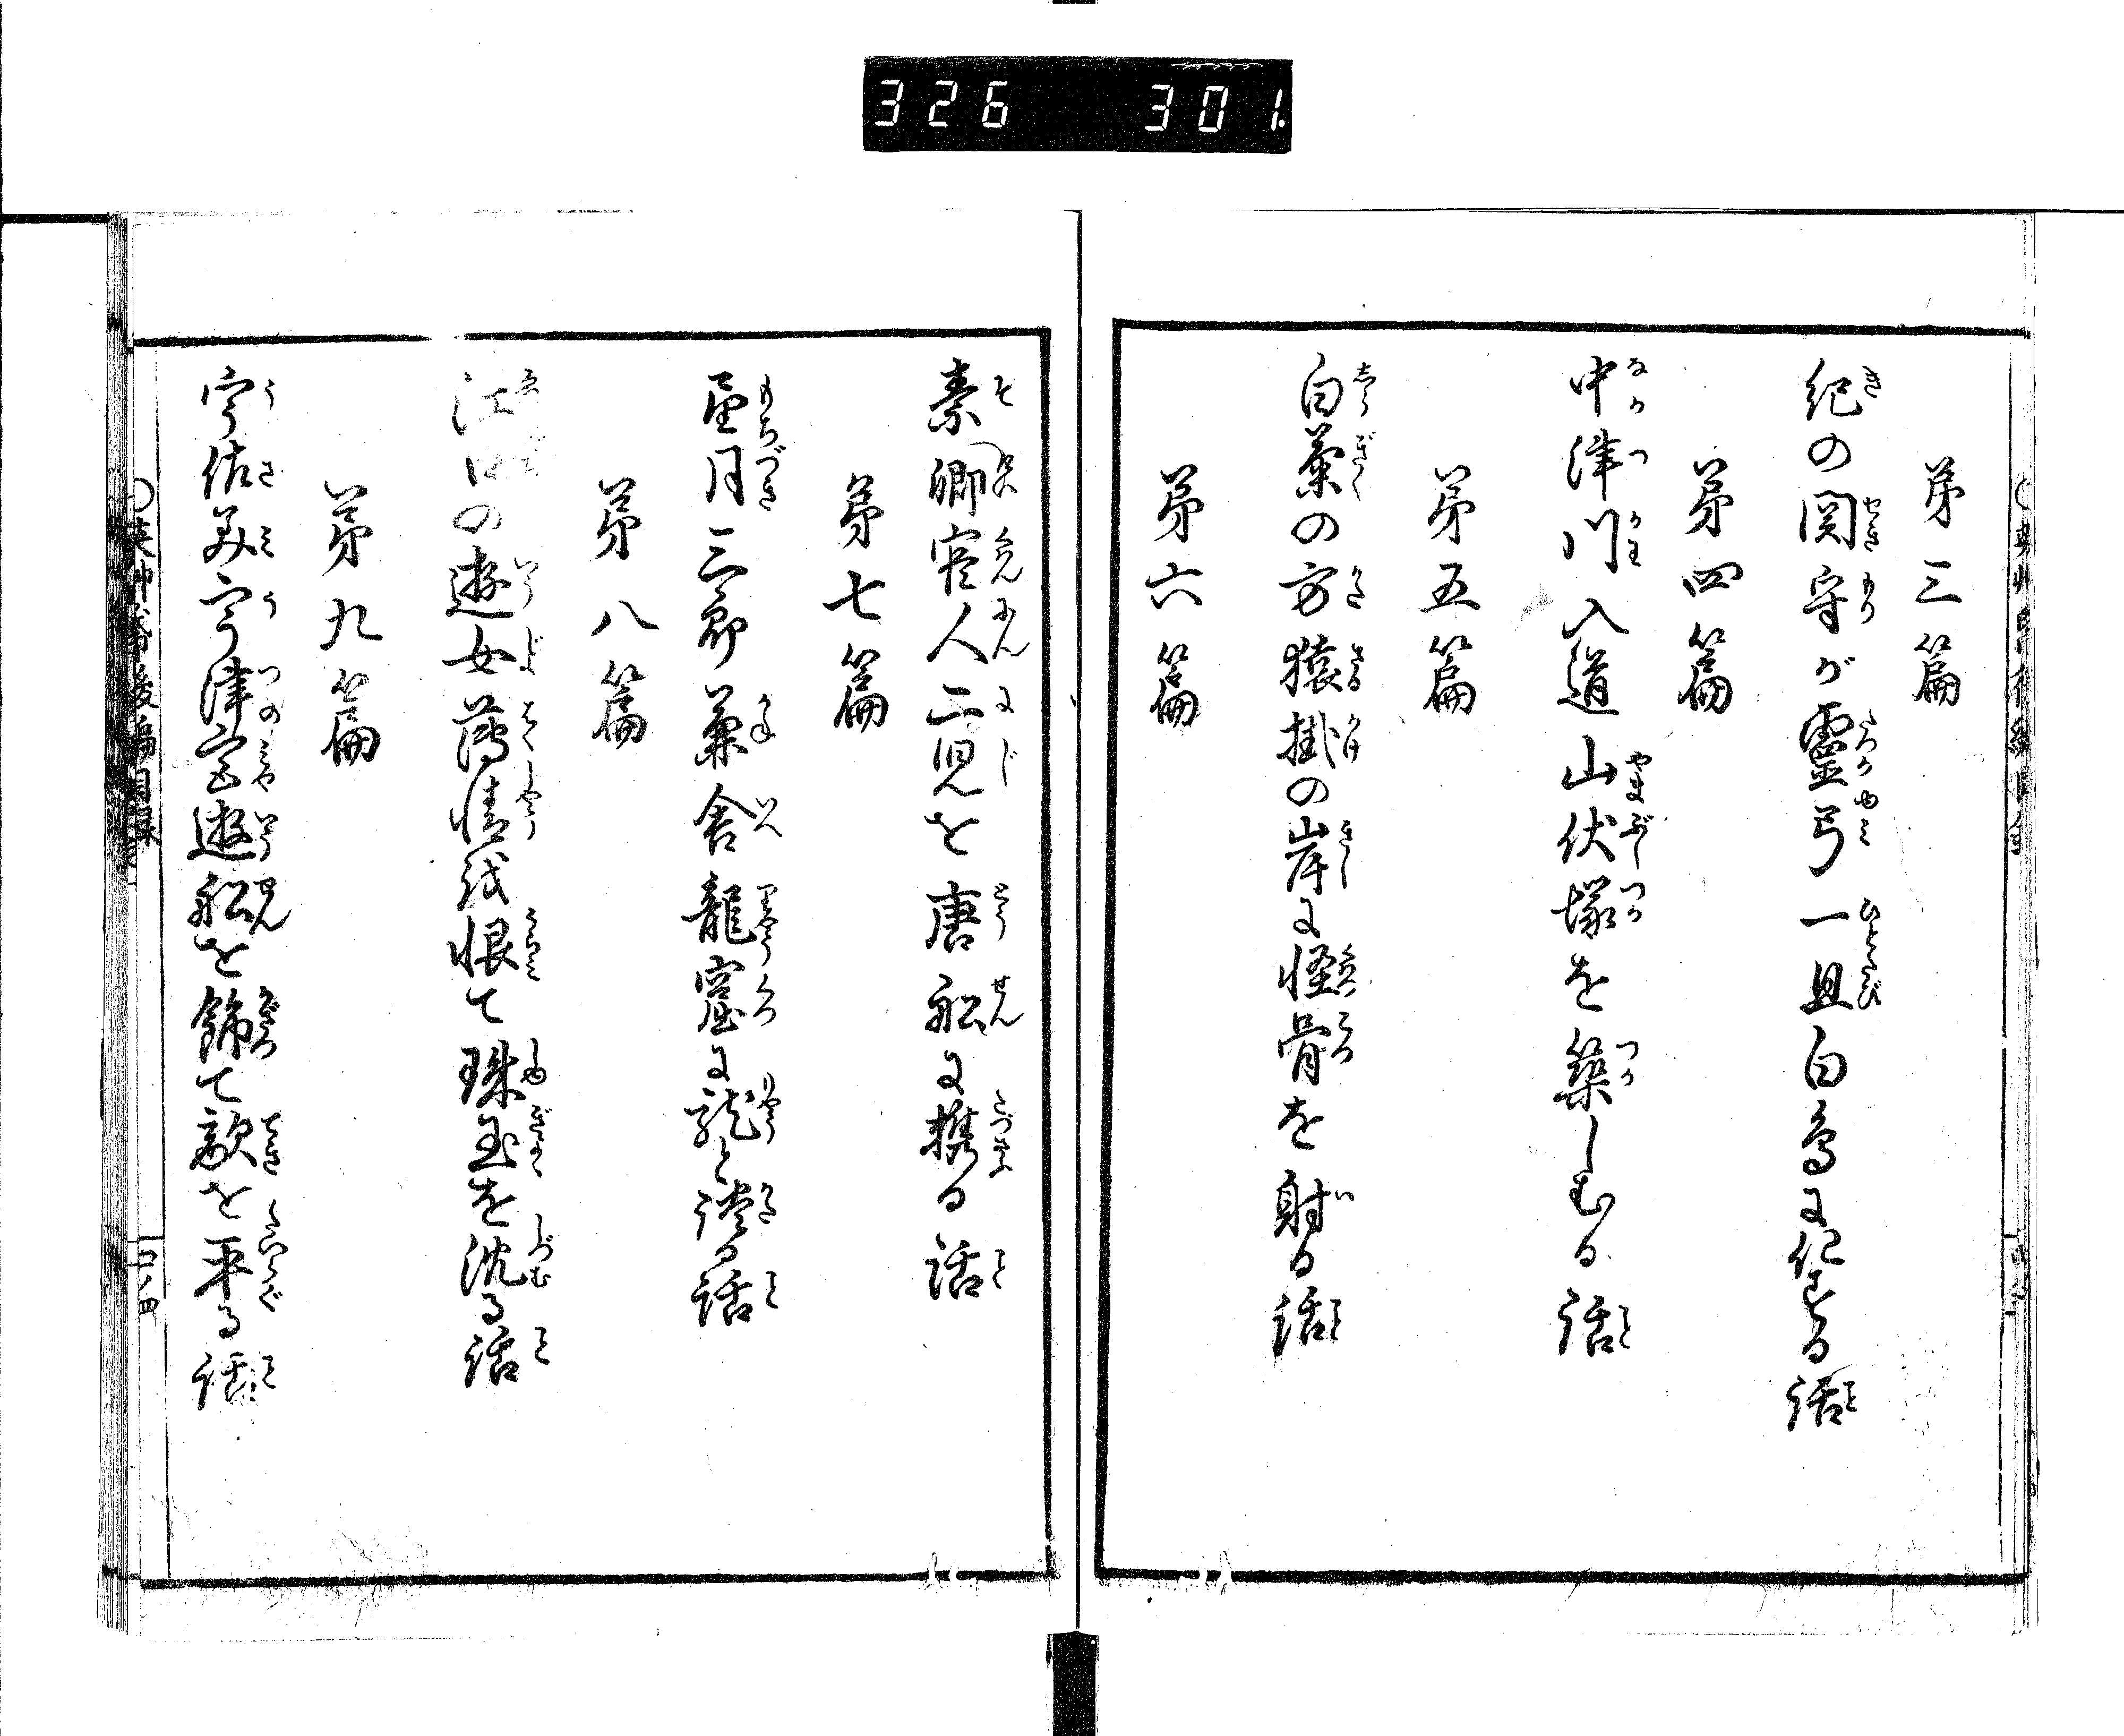 326 301
第三篇
紀の関守が霊弓一旦白鳥に化する話
第四篇
中津川入道山伏塚を築しむる話
第五篇
白菊の方猿掛の岸に怪骨を射る話
第六篇
素卿官人二児を唐船に携る話
第七篇
望月三郎兼舎龍窟に龍と談る話
第八篇
江口の遊女薄情を恨て珠玉を沈る話
第九篇
宇佐美宇津宮遊船を飾て敵を平る話